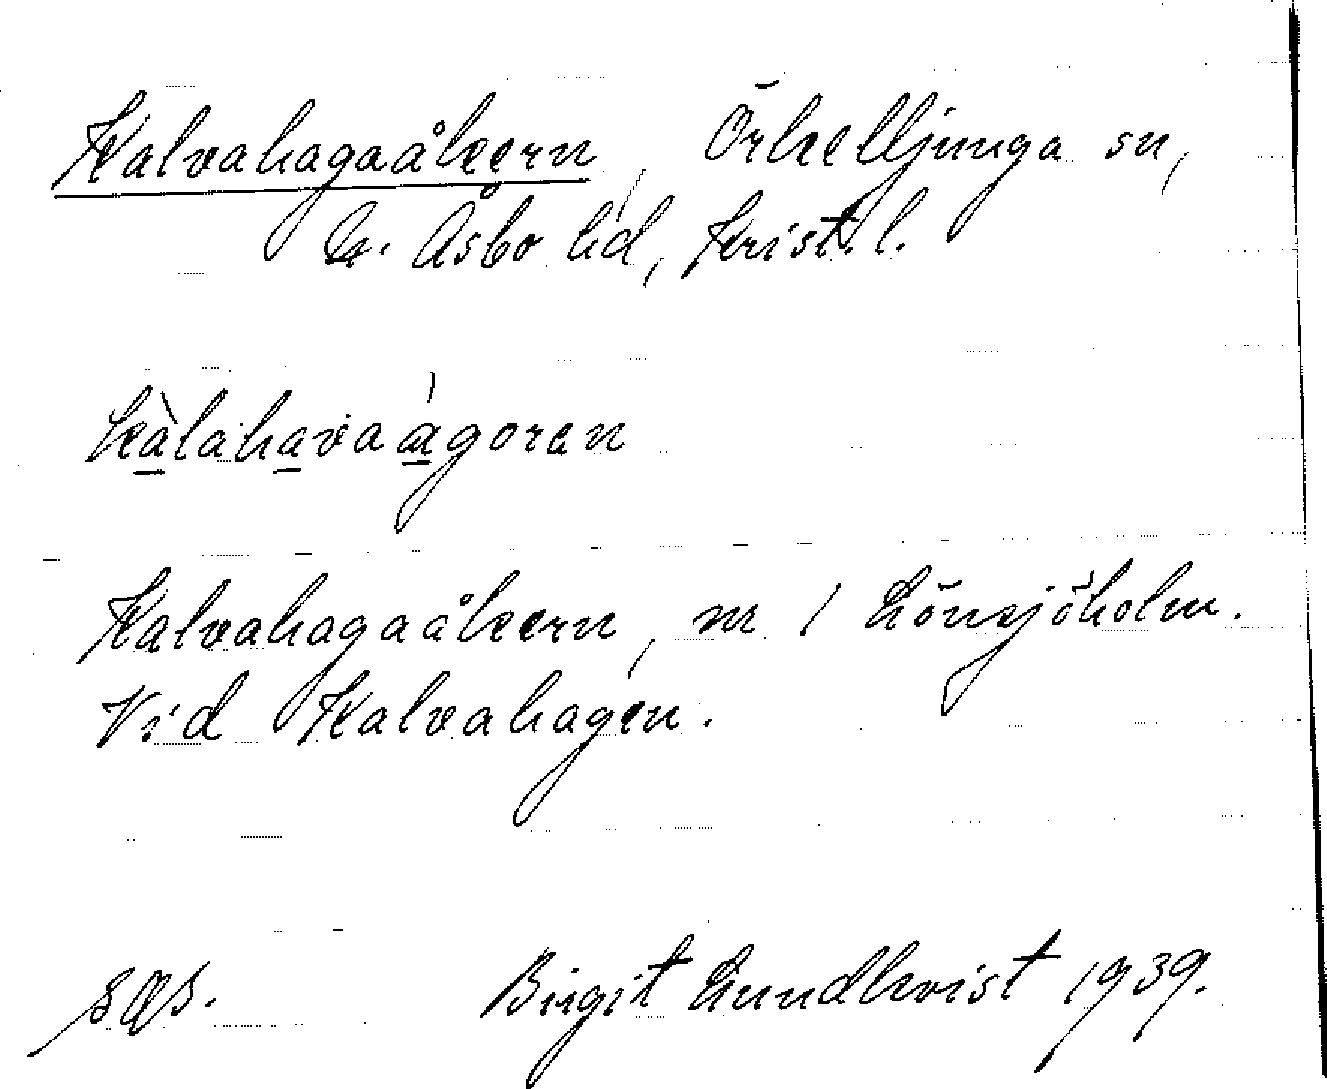 Kalvahagaåkern, Örkelljunga sn,
N. Åsbo hd, Krist. l.
kàlahavaágoren
Kalvahagaåkern, nr 1 Lönsjöholm.
Vid Kalvahagen.
sÆs. Birgit Lundkvist 1939.